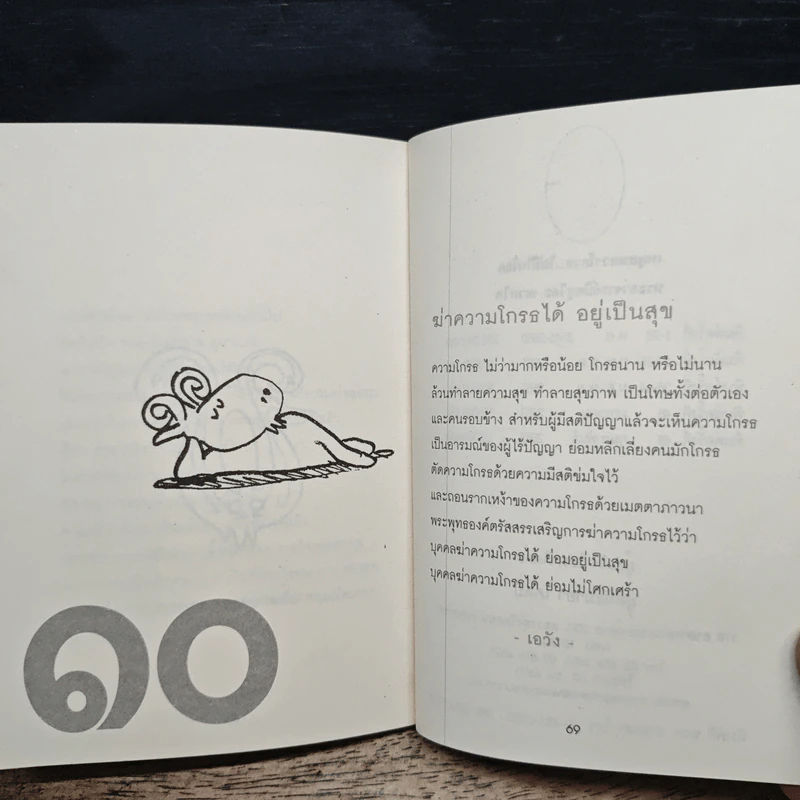 ๑๐
ฆ่าความโกรธได้ อยู่เป็นสุข
ความโกรธ ไม่ว่ามากหรือน้อย โกรธนาน หรือไม่นาน
ล้วนทำลายความสุข ทำลายสุขภาพ เป็นโทษทั้งต่อตัวเอง
และคนรอบข้าง สำหรับผู้มีสติปัญญาแล้วจะเห็นความโกรธ
เป็นอารมณ์ของผู้ไร้ปัญญา ย่อมหลีกเลี่ยงคนมักโกรธ
ตัดความโกรธด้วยความมีสติข่มใจไว้
และถอนรากเหง้าของความโกรธด้วยเมตตาภาวนา
พระพุทธองค์ตรัสสรรเสริญการฆ่าความโกรธไว้ว่า
บุคคลฆ่าความโกรธได้ ย่อมอยู่เป็นสุข
บุคคลฆ่าความโกรธได้ ย่อมไม่โศกเศร้า
- เอวัง -
69